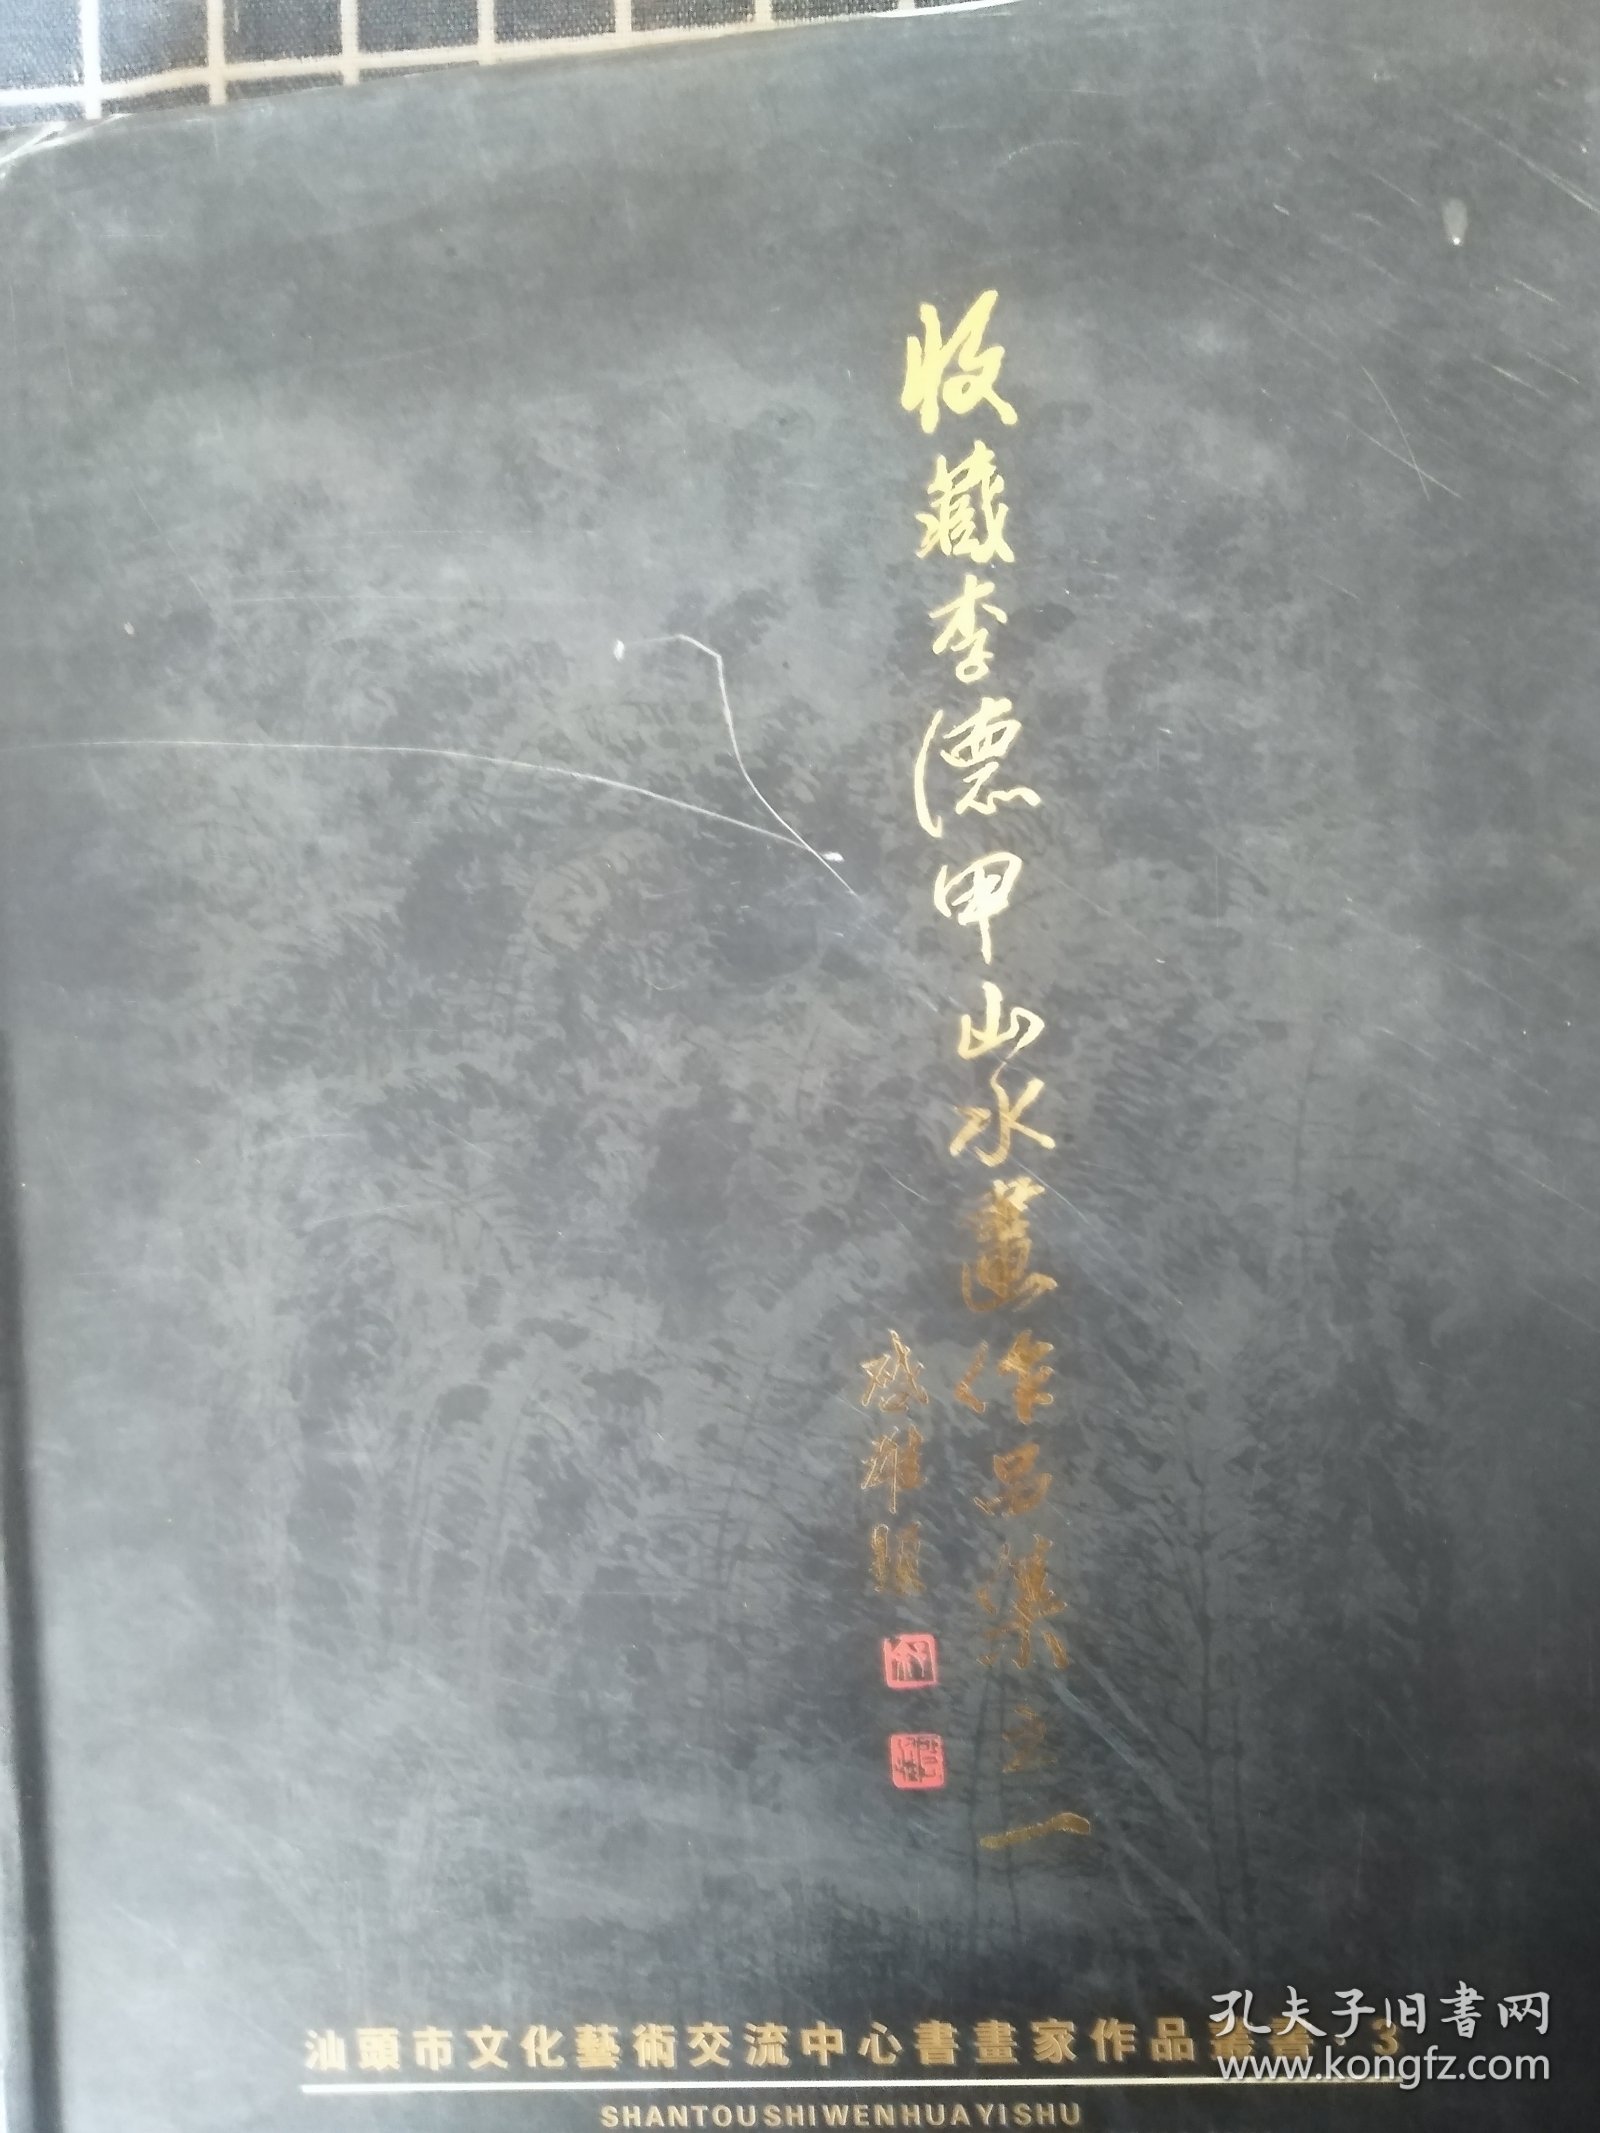 收藏李德甲山水畫作品集之一
雄題
汕頭市文化藝術交流中心書畫家作品叢書·3
SHANTOUSHIWENHUAYISHU
孔夫子旧書网
www.kongfz.com